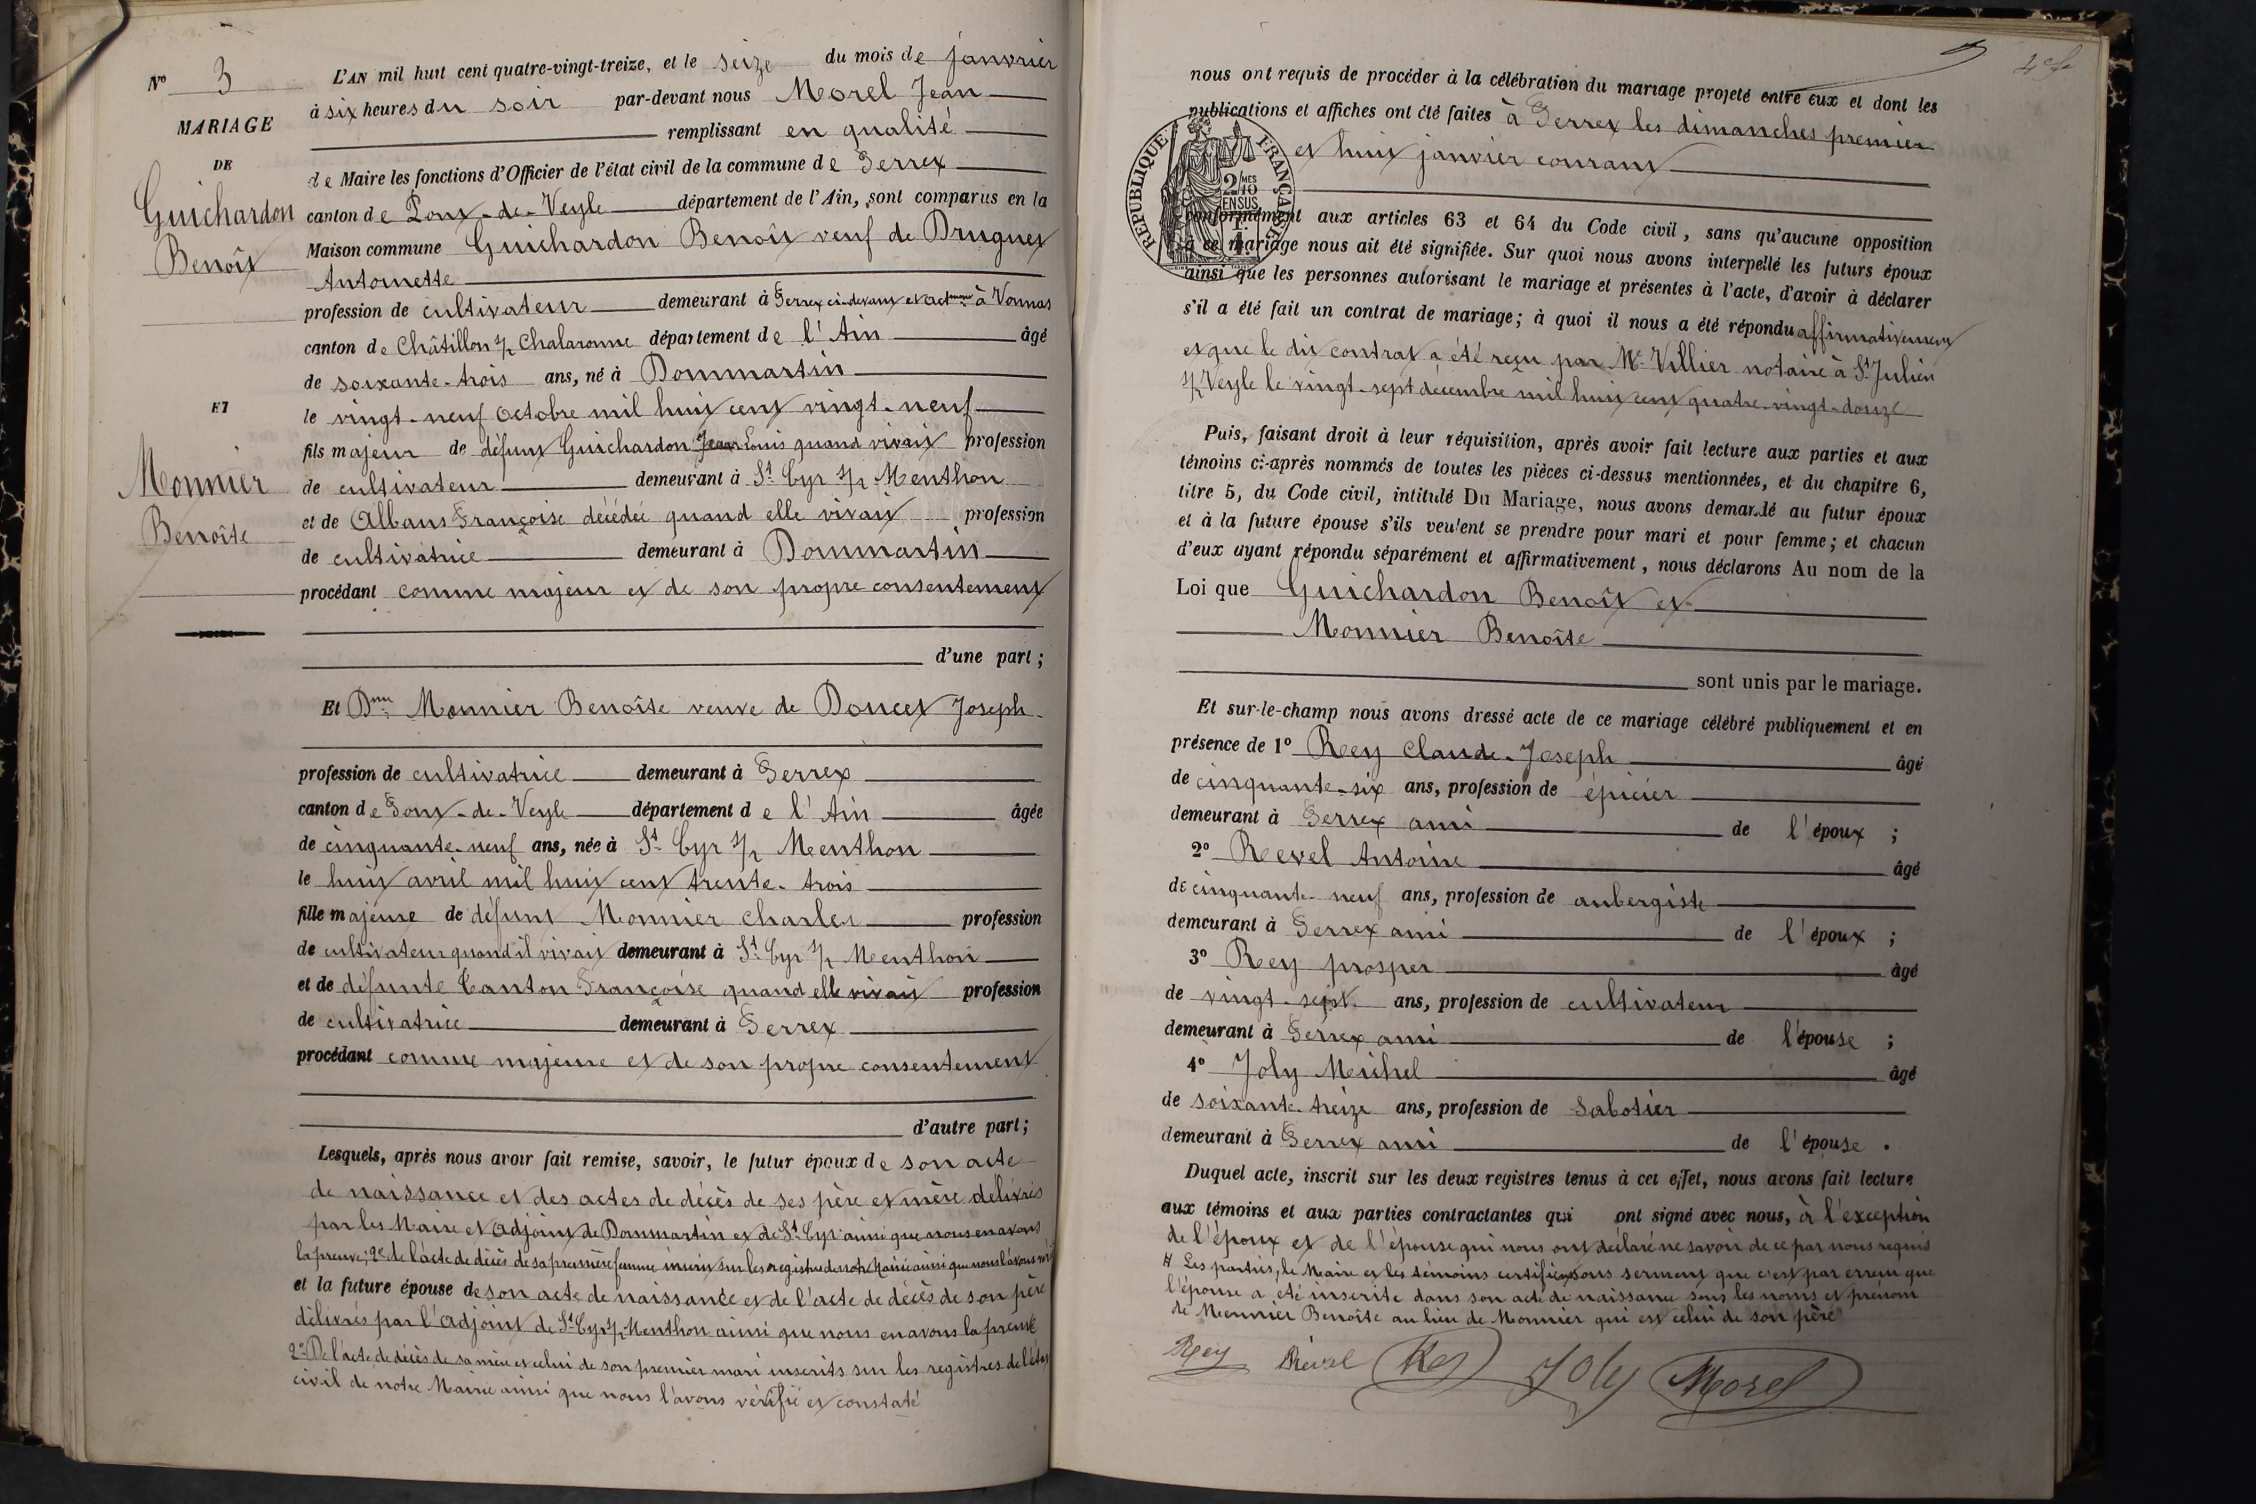 Nº 3
MARIAGE
DE
Guichardon
Benoît
ET
Monnier
Benoîte
L'AN mil huit cent quatre-vingt-treize, et le seize du mois de janvrier
à six heures du soir par-devant nous Morel Jean
remplissant en qualité
de Maire les fonctions d'Officier de l'état civil de la commune de Perrex
canton de Pont-de-Veyle département de l'Ain, sont comparus en la
Maison commune Guichardon Benoît veuf de Druguet
Antoinette
profession de cultivateur demeurant à Perrex ci-devant et actmen à Vonnas
canton de Châtillon s/r Chalaronne département de l'Ain âgé
de soixante-trois ans, né à Dommartin
le vingt-neuf octobre mil huit cent vingt-neuf
fils majeur de défunt Guichardon Jean Louis quand vivait profession
de cultivateur demeurant à St Cyr s/r Menthon
et de Albans Françoise décédée quand elle vivait profession
de cultivatrice demeurant à Dommartin
procédant comme majeur et de son propre consentement
d'une part;
Et Dme Monnier Benoîte veuve de Doucet Joseph
profession de cultivatrice demeurant à Perrex
canton de Pont-de-Veyle département de l'Ain âgée
de cinquante-neuf ans, née à St Cyr s/r Menthon
le huit avril mil huit cent trente-trois
fille majeure de défunt Monnier Charles profession
de cultivateur quand il vivait demeurant à St Cyr s/r Menthon
et de défunte Canton Françoise quand elle vivait profession
de cultivatrice demeurant à Perrex
procédant comme majeure et de son propre consentement
d'autre part;
Lesquels, après nous avoir fait remise, savoir, le futur époux de son acte
de naissance et des actes de décès de ses père et mère délivrés
par les Maire et adjoint de Dommartin et de St Cyr ainsi que nous en avons
la preuve; 2e de l'acte de décès de sa première femme inscrit sur les registres de notre Mairie ainsi que nous l'avons
et la future épouse de son acte de naissance et de l'acte de décès de son père
délivrés par l'adjoint de St Cyr s/r Menthon ainsi que nous en avons la preuve
2º De l'acte de décès de sa mère et celui de son premier mari inscrits sur les registres de l'état
civil de notre Mairie ainsi que nous l'avons vérifié et constaté
nous ont requis de procéder à la célébration du mariage projeté entre eux et dont les
publications et affiches ont été faites à Perrex les dimanches premier
et huit janvier courant
RÉPUBLIQUE FRANÇAISE
2/10MES
EN SUS
conformément aux articles 63 et 64 du Code civil, sans qu'aucune opposition
à ce mariage nous ait été signifiée. Sur quoi nous avons interpellé les futurs époux
ainsi que les personnes autorisant le mariage et présentes à l'acte, d'avoir à déclarer
s'il a été fait un contrat de mariage; à quoi il nous a été répondu affirmativement
et que le dit contrat a été reçu par Me Villier notaire à St Julien
s/r Veyle le vingt-sept décembre mil huit cent quatre-vingt-douze
Puis, faisant droit à leur réquisition, après avoir fait lecture aux parties et aux
témoins ci-après nommés de toutes les pièces ci-dessus mentionnées, et du chapitre 6,
titre 5, du Code civil, intitulé Du Mariage, nous avons demandé au futur époux
et à la future épouse s'ils veulent se prendre pour mari et pour femme; et chacun
d'eux ayant répondu séparément et affirmativement, nous déclarons Au nom de la
Loi que Guichardon Benoît et
Monnier Benoîte
sont unis par le mariage.
Et sur-le-champ nous avons dressé acte de ce mariage célébré publiquement et en
présence de 1º Rey Claude-Joseph âgé
de cinquante-six ans, profession de épicier
demeurant à Perrex ami de l'époux ;
2º Revel Antoine âgé
de cinquante-neuf ans, profession de aubergiste
demeurant à Perrex ami de l'époux ;
3º Rey prosper âgé
de vingt-sept ans, profession de cultivateur
demeurant à Perrex ami de l'épouse ;
4º Joly Meihel âgé
de soixante-treize ans, profession de sabotier
demeurant à Perrex ami de l'épouse .
Duquel acte, inscrit sur les deux registres tenus à cet effet, nous avons fait lecture
aux témoins et aux parties contractantes qui ont signé avec nous, à l'exception
de l'époux et de l'épouse qui nous ont déclaré ne savoir de ce par nous requis
# Les parties, le Maire et les témoins certifient sous serment que c'est par erreur que
l'épouse a été inscrite dans son acte de naissance sous les noms et prénom
de Meunier Benoîte au lieu de Monnier qui est celui de son père
Rey Revel Rey Joly Morel